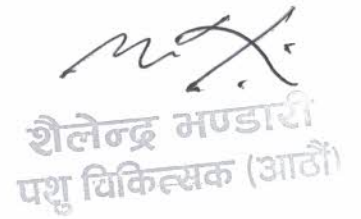 शैलेन्द्र भण्डारी
पशु चिकित्सक (आठौं)